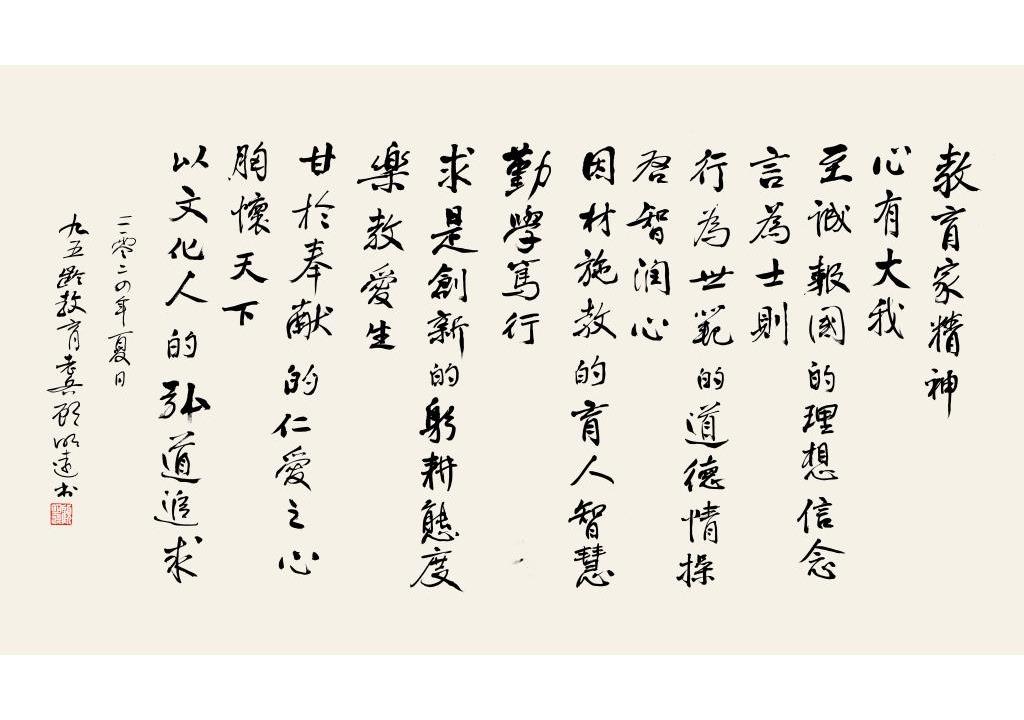 教育家精神
心有大我
至诚報國的理想信念
言為士則
行為世範的道德情操
启智润心
因材施教的育人智慧
勤學篤行
求是創新的躬耕態度
樂教愛生
甘於奉献的仁愛之心
胸懷天下
以文化人的弘道追求
二零二四年夏日
九五龄教育老兵顾明远书